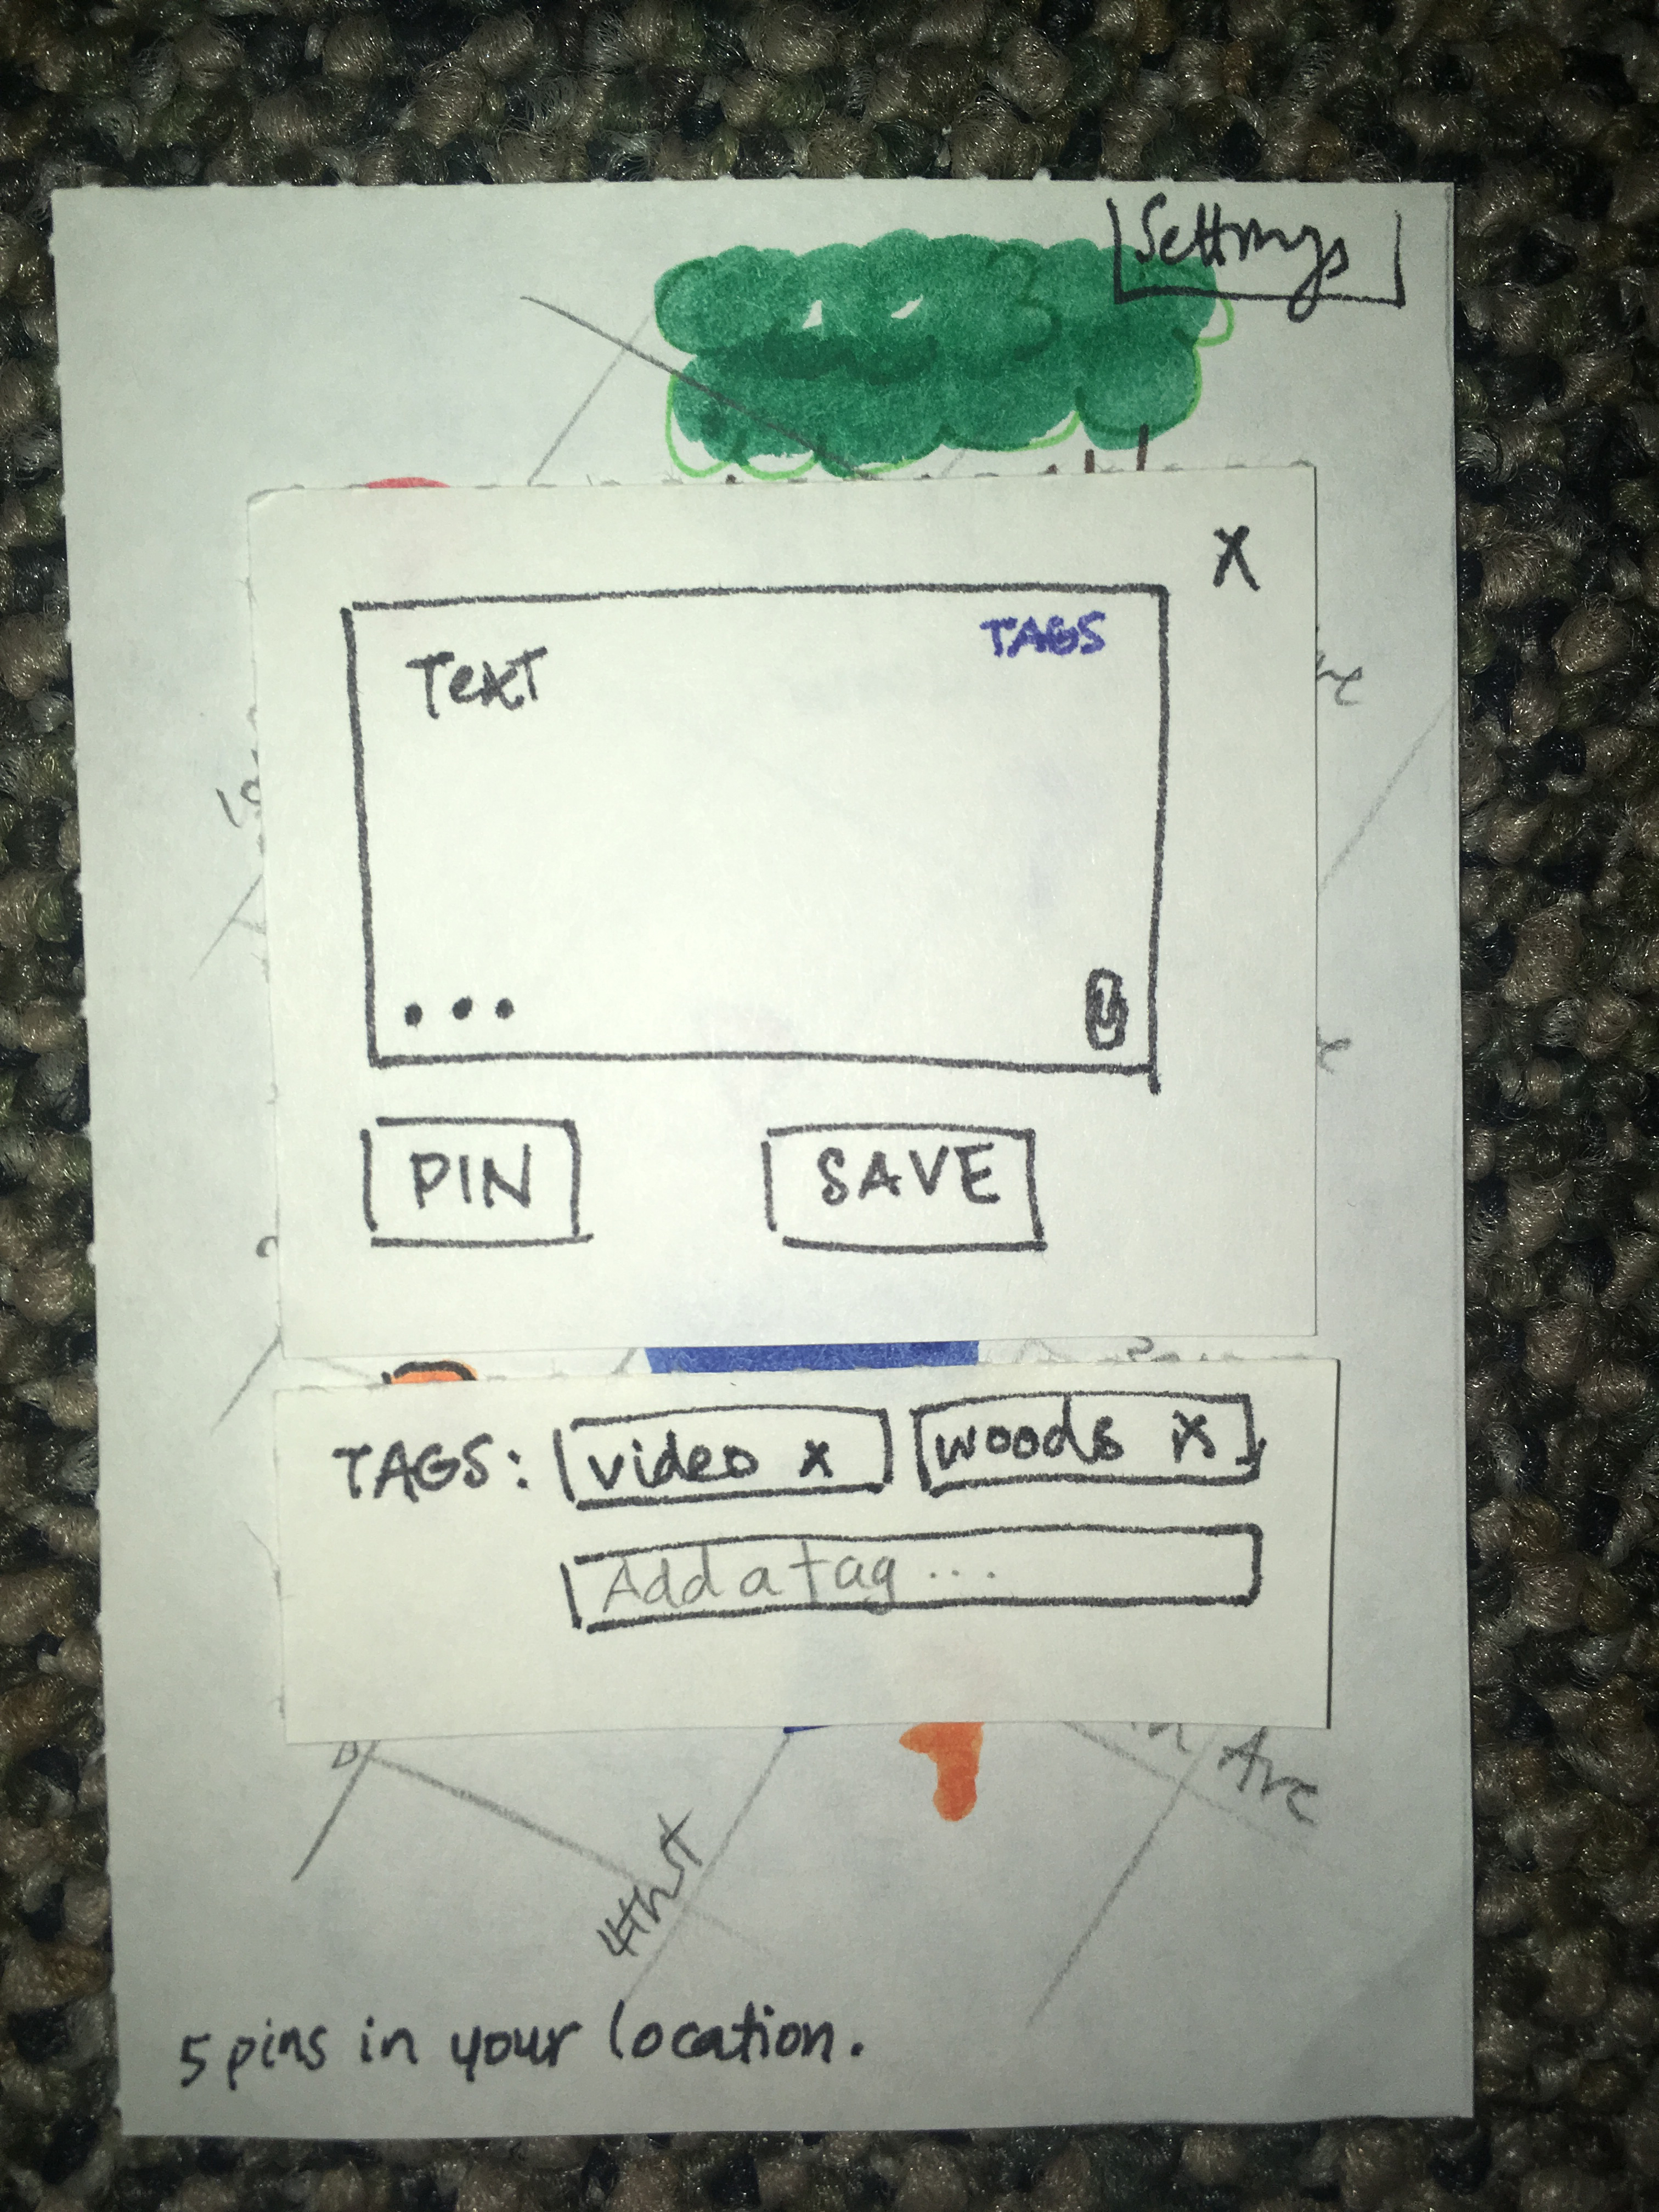 Settings
X
TAGS
Text
...
PIN SAVE
TAGS: video x woods x
Add a tag ...
Ave
4th st
5 pins in your location.